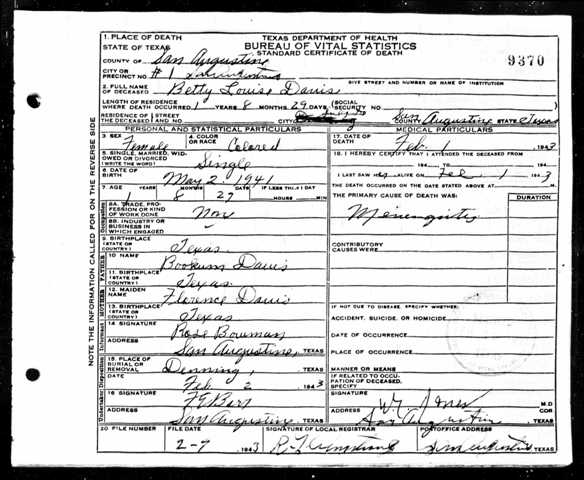 TEXAS DEPARTMENT OF HEALTH
BUREAU OF VITAL STATISTICS
STANDARD CERTIFICATE OF DEATH
9370
1. PLACE OF DEATH
STATE OF TEXAS
COUNTY OF San Augustine
CITY OR PRECINCT NO. #1
GIVE STREET AND NUMBER OR NAME OF INSTITUTION
2. FULL NAME OF DECEASED Betty Louise Davis
LENGTH OF RESIDENCE WHERE DEATH OCCURRED 1 YEARS 8 MONTHS 29 DAYS (SOCIAL SECURITY NO.
RESIDENCE OF THE DECEASED STREET AND NO. CITY COUNTY San Augustine STATE Texas
PERSONAL AND STATISTICAL PARTICULARS
3. SEX Female 4. COLOR OR RACE Colored
5. SINGLE, MARRIED, WIDOWED OR DIVORCED (WRITE THE WORD) Single
6. DATE OF BIRTH May 2, 1941
7. AGE 1 YEARS 8 MONTHS 29 DAYS IF LESS THAN 1 DAY HOURS MIN
8A. TRADE, PROFESSION OR KIND OF WORK DONE
8B. INDUSTRY OR BUSINESS IN WHICH ENGAGED
9. BIRTHPLACE (STATE OR COUNTRY) Texas
10 NAME Davis
11. BIRTHPLACE (STATE OR COUNTRY) Texas
12. MAIDEN NAME Florence Davis
13. BIRTHPLACE (STATE OR COUNTRY) Texas
14 SIGNATURE Rose Bowman
ADDRESS San Augustine, TEXAS
15. PLACE OF BURIAL OR REMOVAL Denning, TEXAS
DATE Feb 2 1943
16 SIGNATURE
ADDRESS San Augustine, TEXAS
MEDICAL PARTICULARS
17. DATE OF DEATH Feb. 1 1943
18. I HEREBY CERTIFY THAT I ATTENDED THE DECEASED FROM
I LAST SAW ALIVE ON Feb 1 1943
THE DEATH OCCURRED ON THE DATE STATED ABOVE AT M.
THE PRIMARY CAUSE OF DEATH WAS: DURATION
CONTRIBUTORY CAUSES WERE:
IF NOT DUE TO DISEASE, SPECIFY WHETHER:
ACCIDENT, SUICIDE, OR HOMICIDE
DATE OF OCCURRENCE
PLACE OF OCCURRENCE
MANNER OR MEANS
IF RELATED TO OCCUPATION OF DECEASED, SPECIFY
SIGNATURE M.D
ADDRESS San Augustine COR TEXAS
20 FILE NUMBER FILE DATE 2-7 1943 SIGNATURE OF LOCAL REGISTRAR POSTOFFICE ADDRESS TEXAS
NOTE THE INFORMATION CALLED FOR ON THE REVERSE SIDE